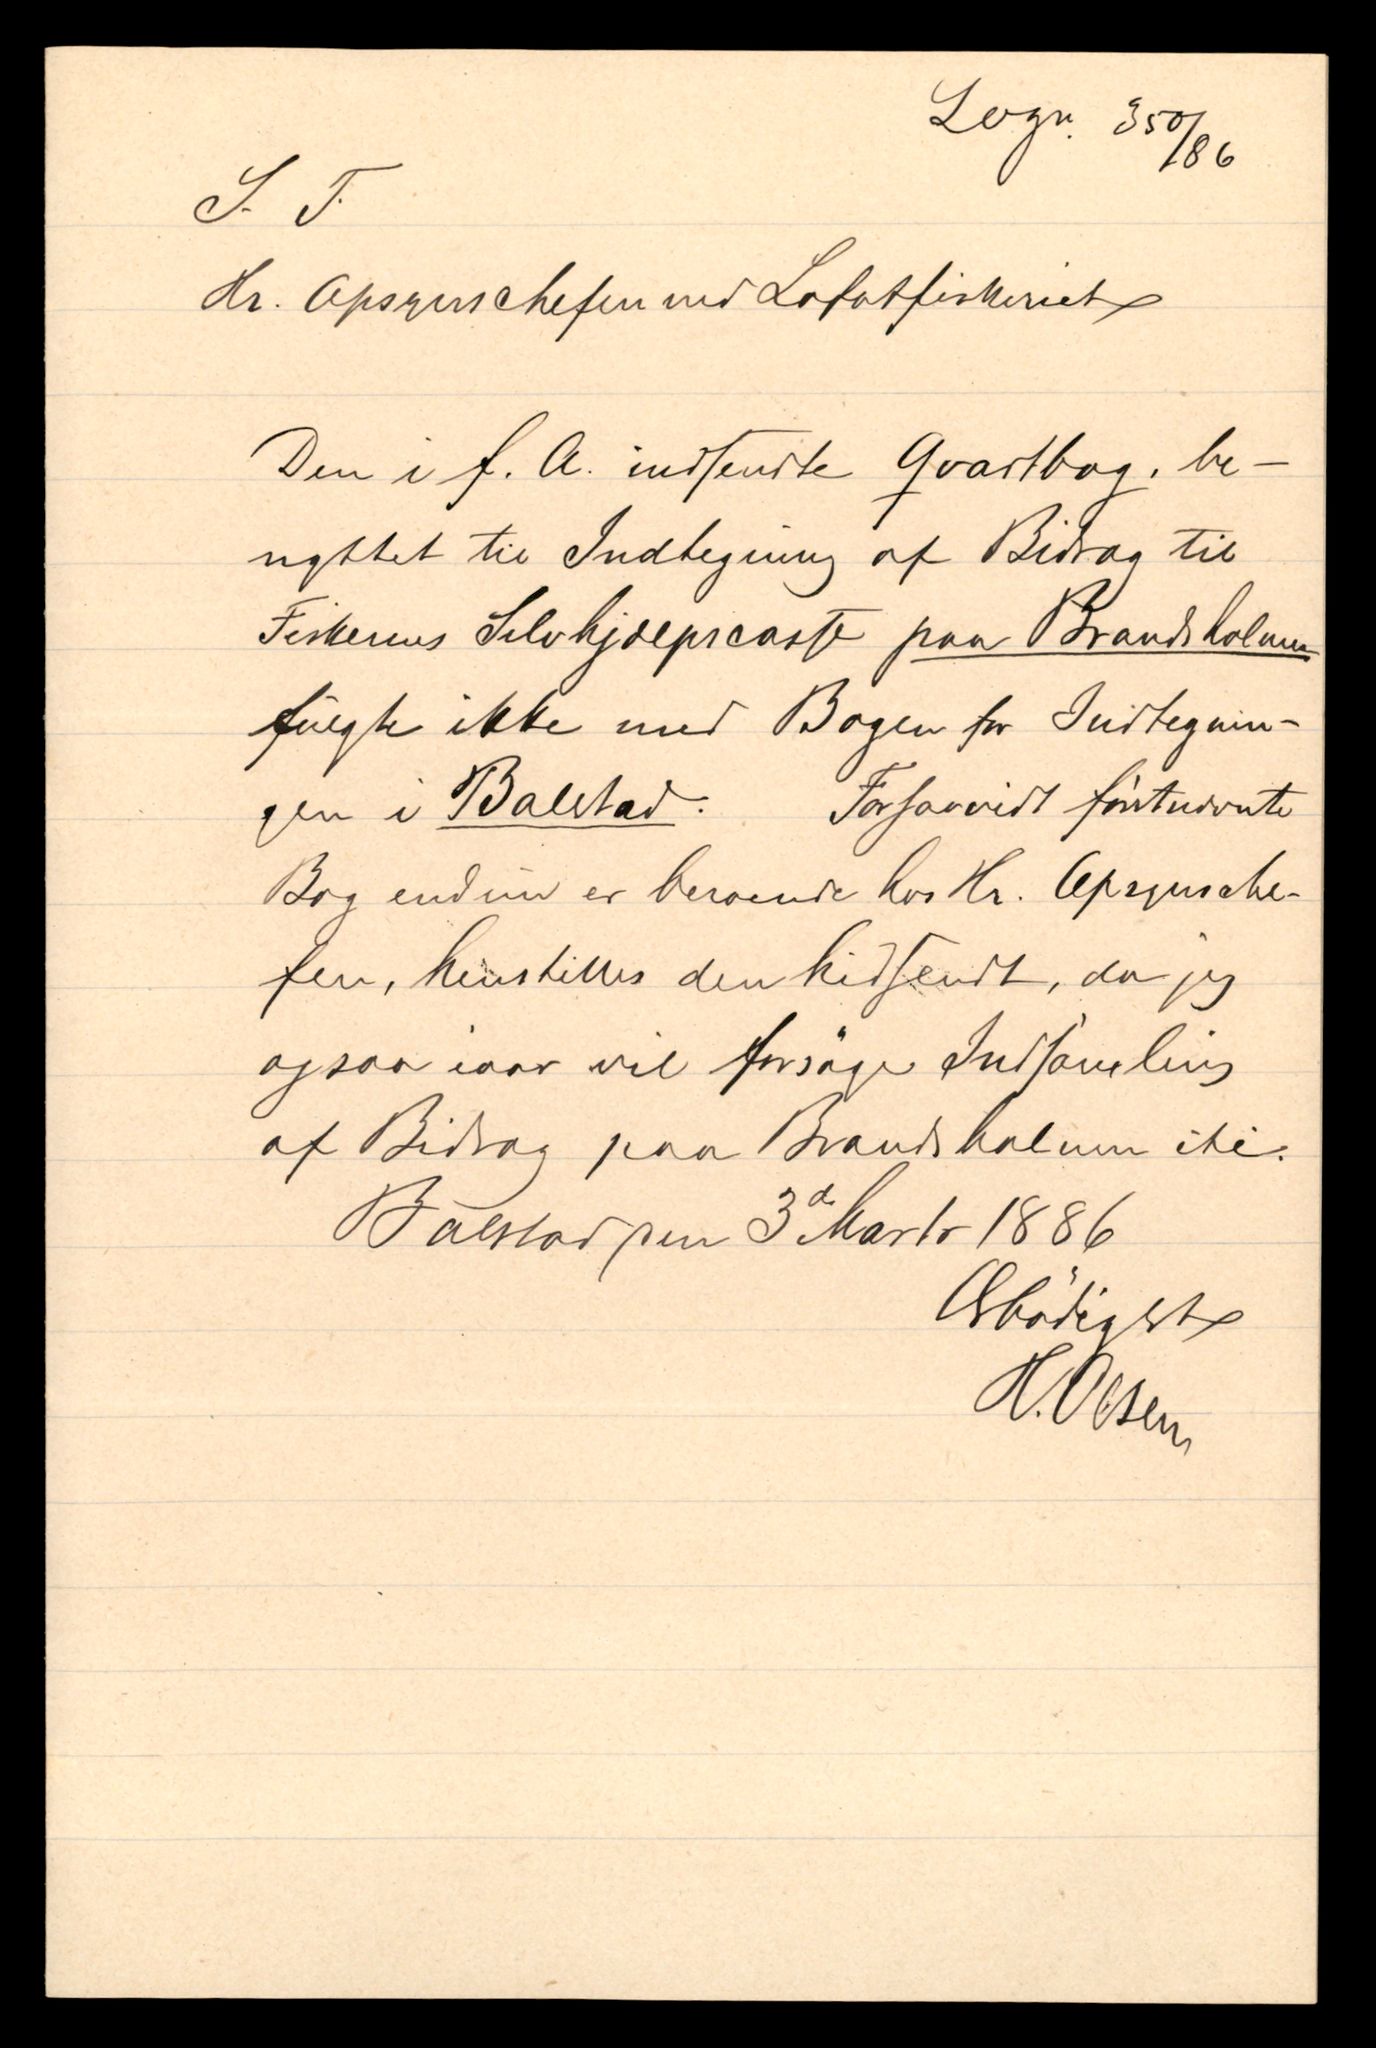 Logn. 350/86
S. T.
Hr. Opsynschefen ved Lofotfiskeriet
Den i f. A. indsendte Qvartbog, be-
nyttet til Indtegning af Bidrag til
Fiskernes Selvhjælpscasse paa Brandsholmen
fulgte ikke med Bogen for Indtegnin-
gen i Balstad. Forsaavidt förstnævnte
Bog endnu er beroende hos Hr. Opsynsche-
fen, henstilles den hidsendt, da jeg
ogsaa iaar vil forsöge Indsamling
af Bidrag paa Brandsholmen
Balstad den 3d Marts 1886
Ærbödigst
H. Olsen